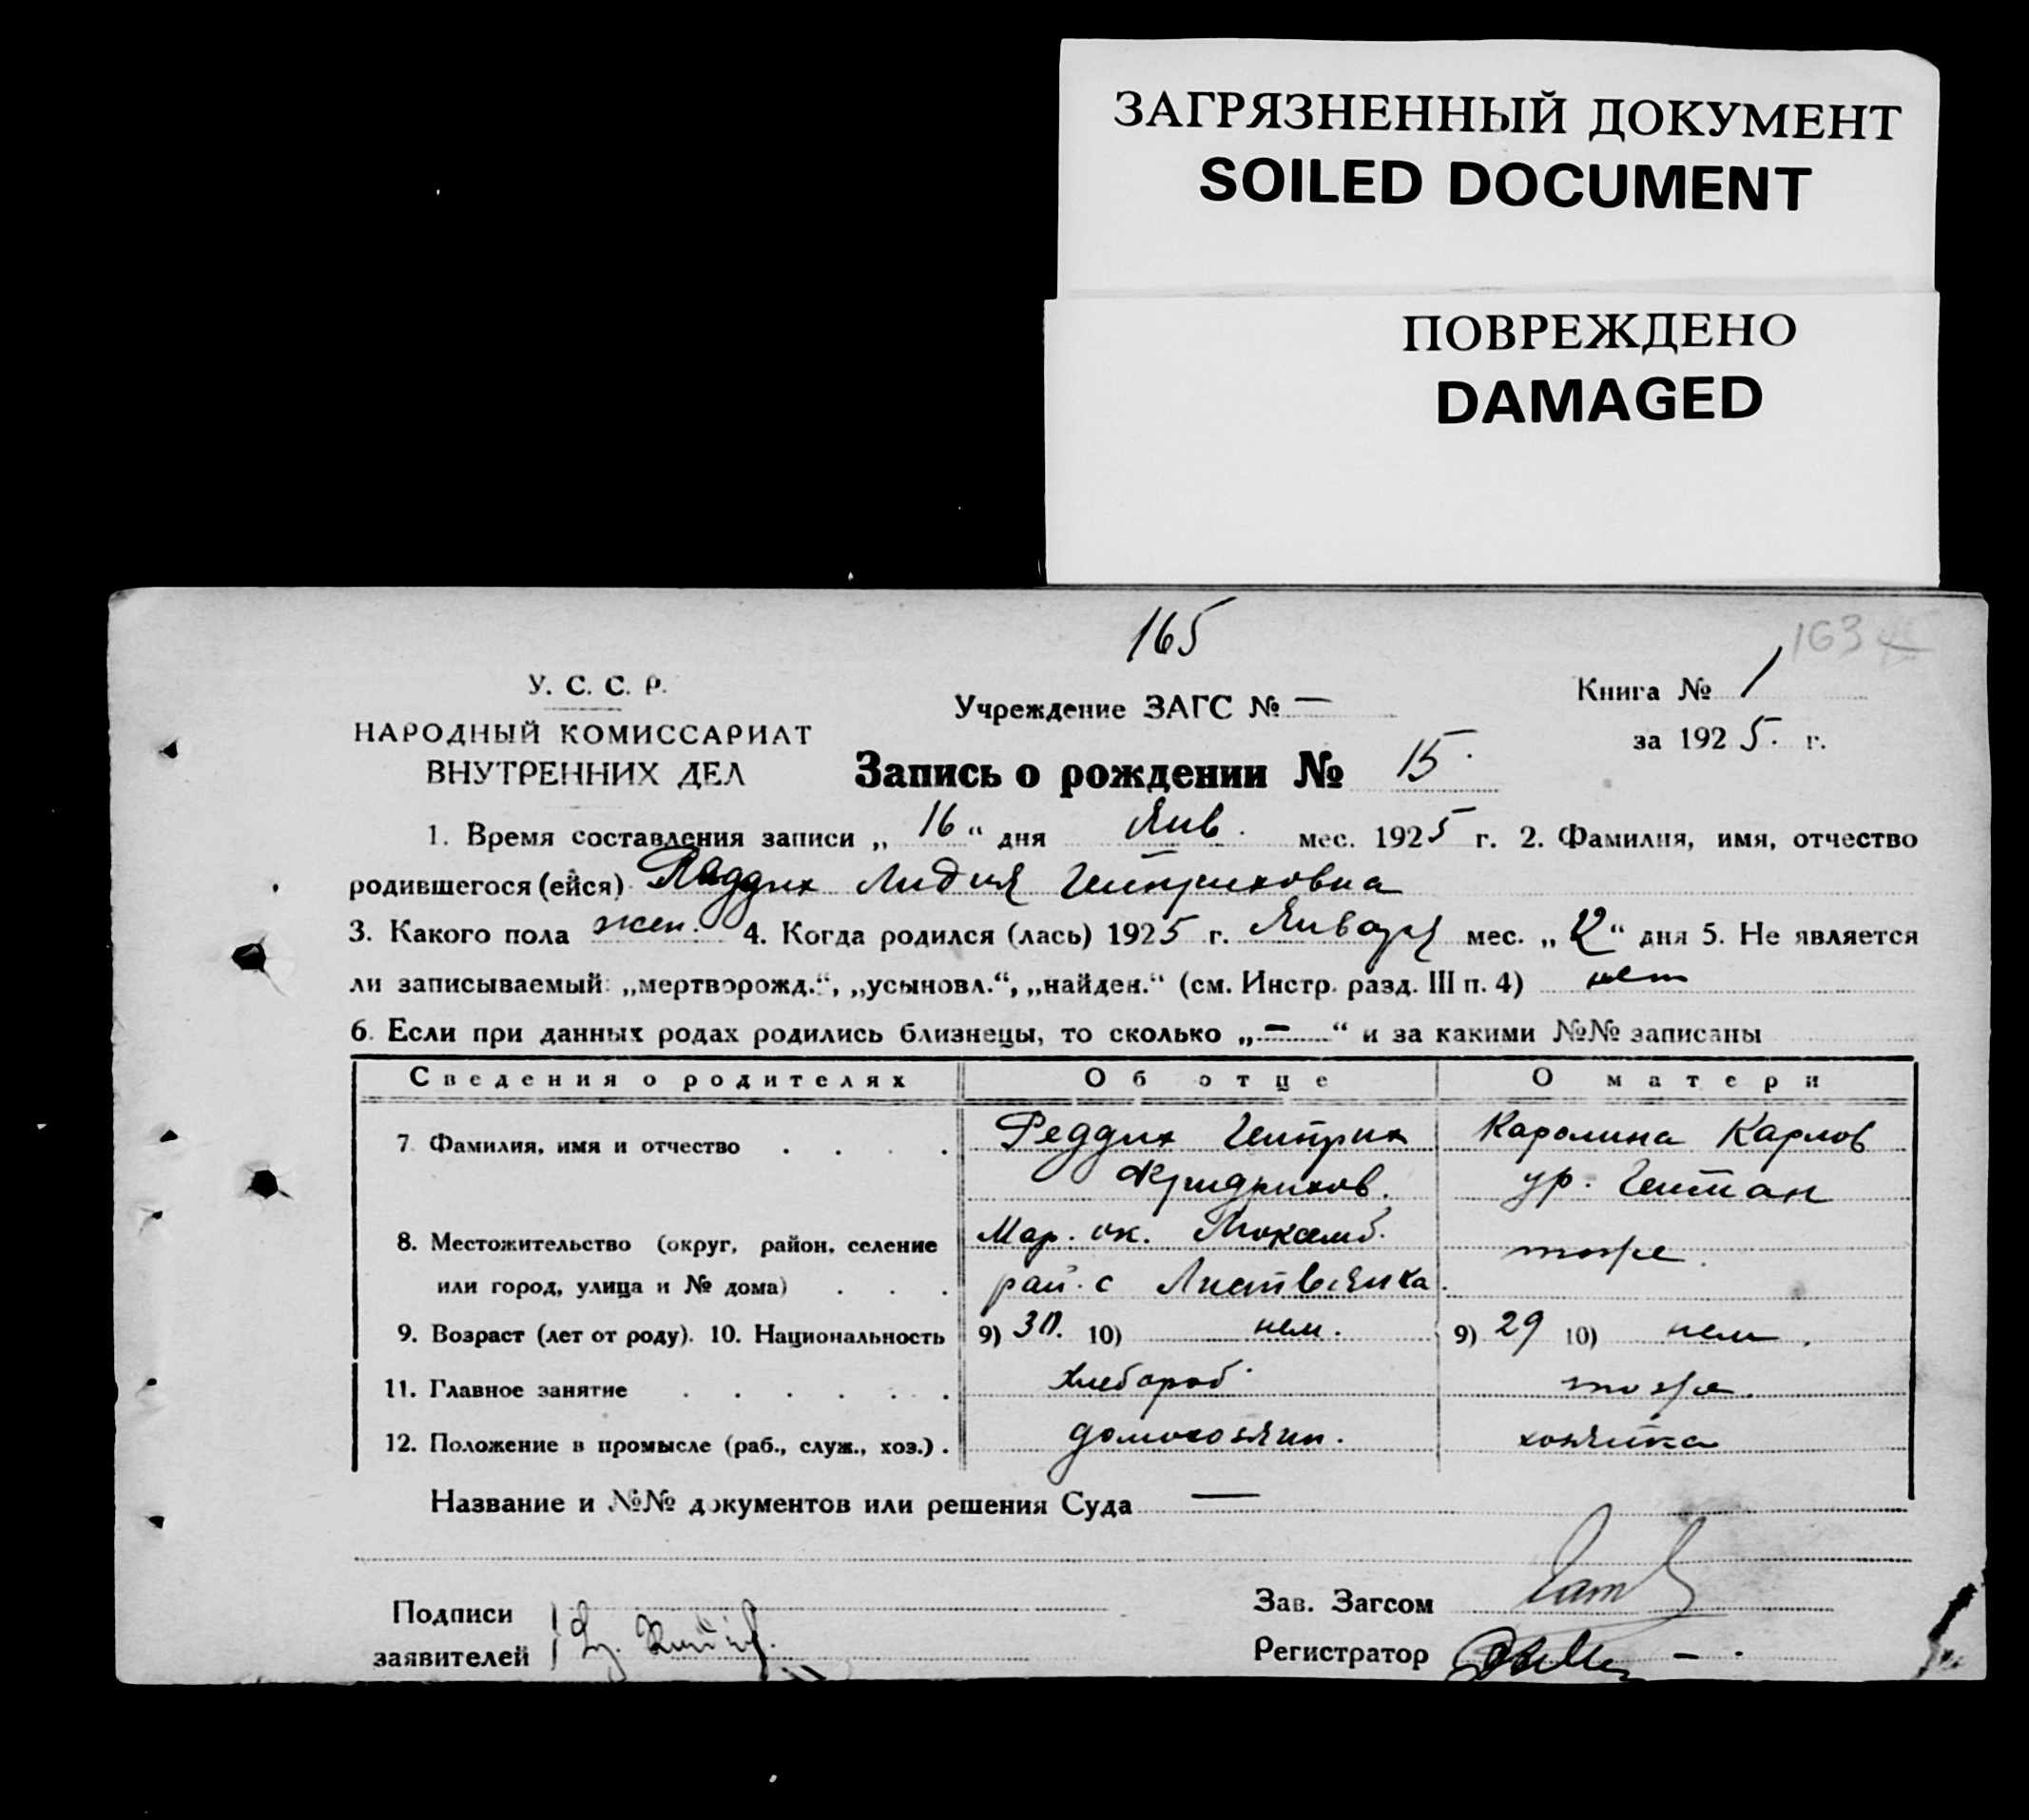 ЗАГРЯЗНЕННЫЙ ДОКУМЕНТ
SOILED DOCUMENT
ПОВРЕЖДЕНО
DAMAGED
165
163
У. С. С. Р.
НАРОДНЫЙ КОМИССАРИАТ
ВНУТРЕННИХ ДЕЛ
Учреждение ЗАГС № —
Книга № 1
за 1925. г.
Запись о рождении № 15.
1. Время составления записи „ 16 “ дня Янв. мес. 1925 г. 2. Фамилия, имя, отчество
родившегося (ейся) Лидия Гейнриховна
3. Какого пола жен. 4. Когда родился (лась) 1925 г. Января мес. „ 12 “ дня 5. Не является
ли записываемый: „мертворожд.“, „усыновл.“, „найден.“ (см. Инстр. разд. III п. 4) нет
6. Если при данных родах родились близнецы, то сколько „ — “ и за какими №№ записаны
Сведения о родителях Об отце О матери
7. Фамилия, имя и отчество . . . . Реддих Гейнрих Каролина Карлов
Фридрихов. ур. Гейман
8. Местожительство (округ, район, селение Мар. ок. тоже.
или город, улица и № дома) . . . рай. с Листвянка.
9. Возраст (лет от роду). 10. Национальность 9) 30. 10) нем. 9) 29 10) нем.
11. Главное занятие . . . . . . хлебороб. тоже.
12. Положение в промысле (раб., служ., хоз.) . домохозяин. хозяйка
Название и №№ документов или решения Суда —
Подписи
заявителей
Зав. Загсом
Регистратор